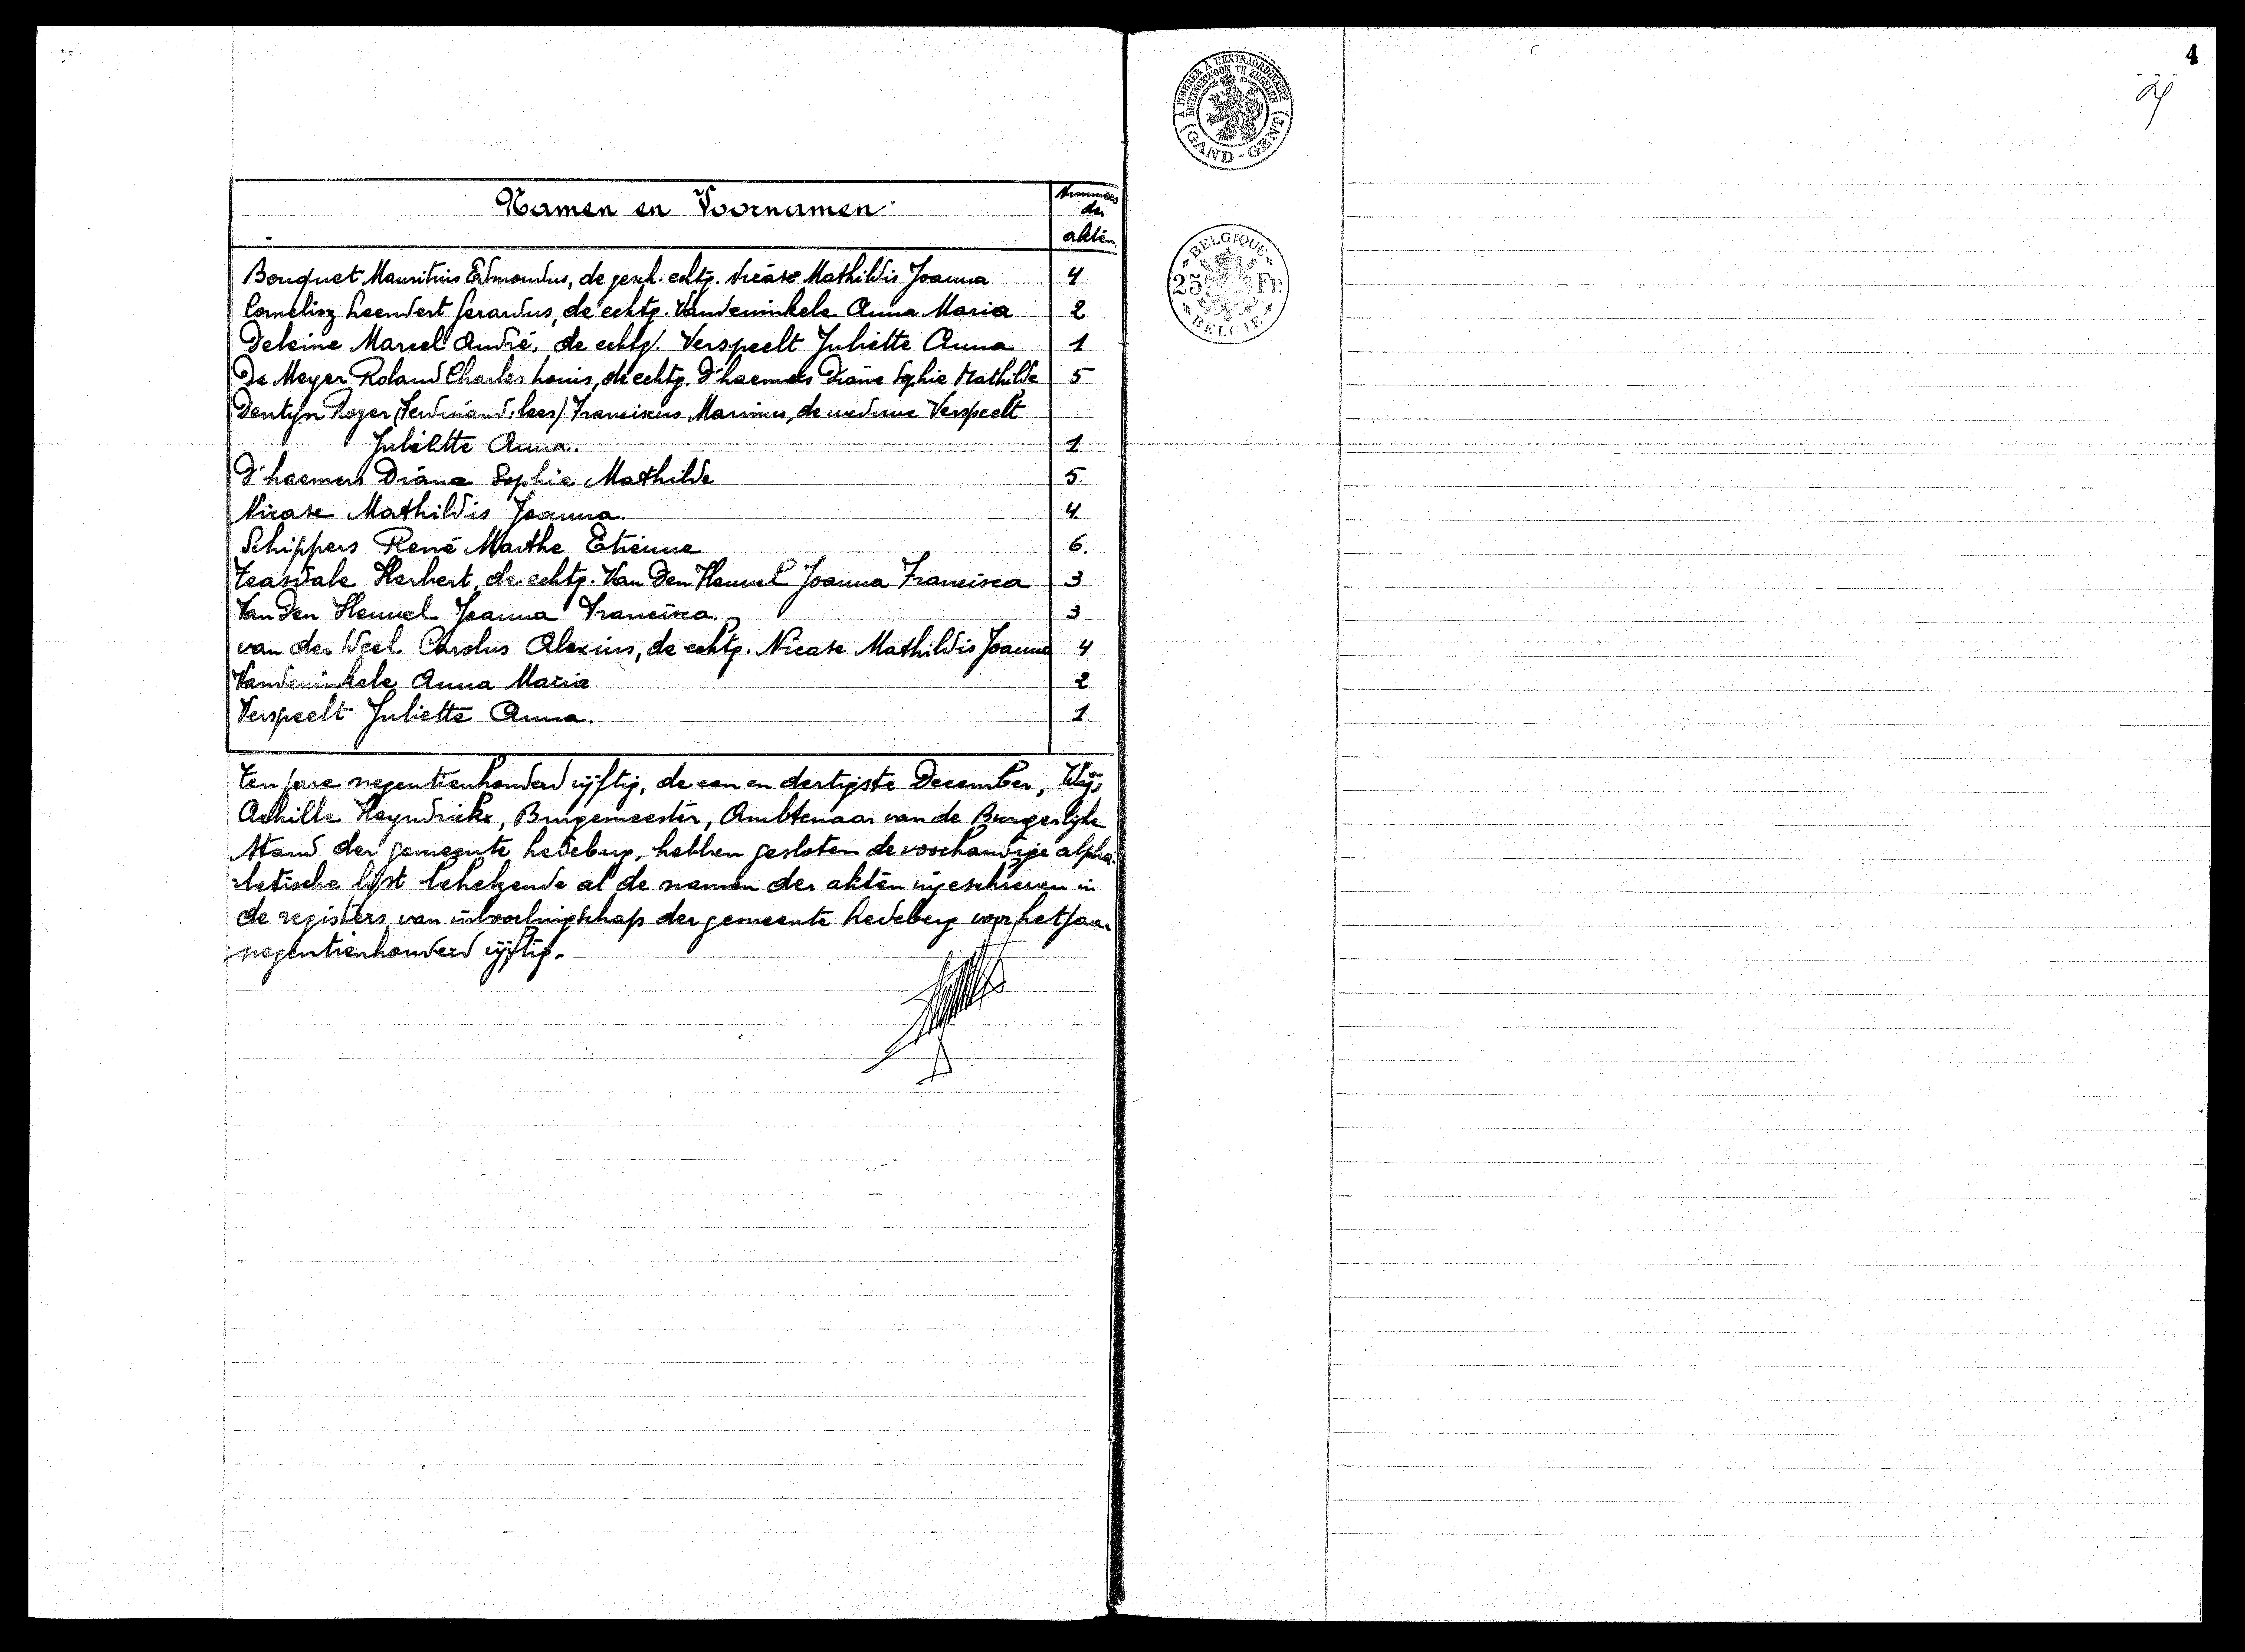 Namen en Voornamen
Nummers
der
akten.
Bouquet Mauritius Edmondus, de gesch. echtg. Nicase Mathildis Joanna 4
Cornelisz Leendert Gerardus, de echtg. Vandewinkele Anna Maria 2
Deleine Marcel André, de echtg. Verspeelt Juliette Anna 1
De Meyer Roland Charles Louis, de echtg. D'haemers Diana Sophie Mathilde 5
Dentyn Roger (Ferdinand, lees) Franciscus Marinus, de weduwe Verspeelt
Juliette Anna. 1
D'haemers Diana Sophie Mathilde 5.
Nicase Mathildis Joanna. 4.
Schippers René Marthe Etienne 6.
Teasdale Herbert, de echtg. Van Den Heuvel Joanna Francisca 3
Van Den Heuvel Joanna Francisca. 3
van der Weel Carolus Alexius, de echtg. Nicase Mathildis Joanna 4
Vandewinkele Anna Maria 2
Verspeelt Juliette Anna. 1.
Ten jare negentienhonderd vijftig, de een en dertigste December, Wij,
Achille Heyndrickx, Burgemeester, Ambtenaar van de Burgerlijke
Stand der gemeente Ledeberg, hebben gesloten de voorhandige alpha-
betische lijst behelzende al de namen der akten ingeschreven in
de registers van der gemeente Ledeberg voor het jaar
negentienhonderd vijftig.
A TIMBRER A L'EXTRAORDINAIRE
BUITENGEWOON TE ZEGELEN
(GAND - GENT)
BELGIQUE
25 Fr.
BELGIE
4